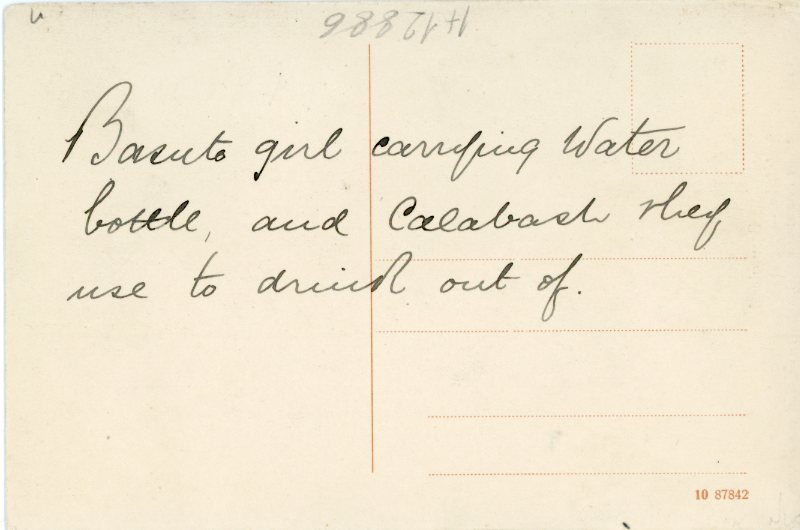 H12886
Basuto girl carrying Water
bottle, and Calabash they
use to drink out of.
10 87842